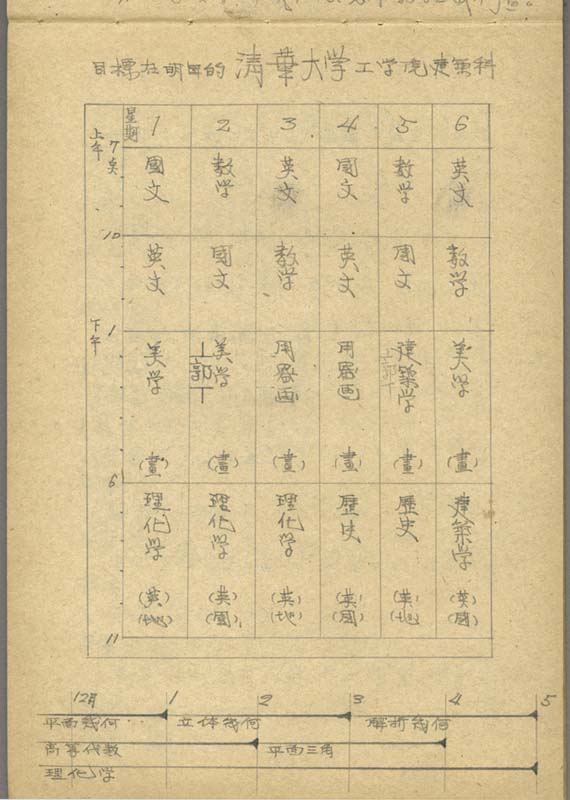 目標在明日的清華大学工学院建築科
星期 1 2 3 4 5 6
上午
7
國文 数学 英文 國文 数学 英文
10
英文 國文 数学 英文 國文 数学
下午
1
美学 美学 用器画 用器画 建築学 美学
上郭下 上郭下
(畫) (畫) (畫) (畫) (畫) (畫)
6
理化学 理化学 理化学 歷史 歷史 建築学
(英) (英) (英) (英) (英) (英)
(地) (國) (地) (國) (地) (國)
11
12月 1 2 3 4 5
平面幾何 立体幾何 解析幾何
高等代数 平面三角
理化学